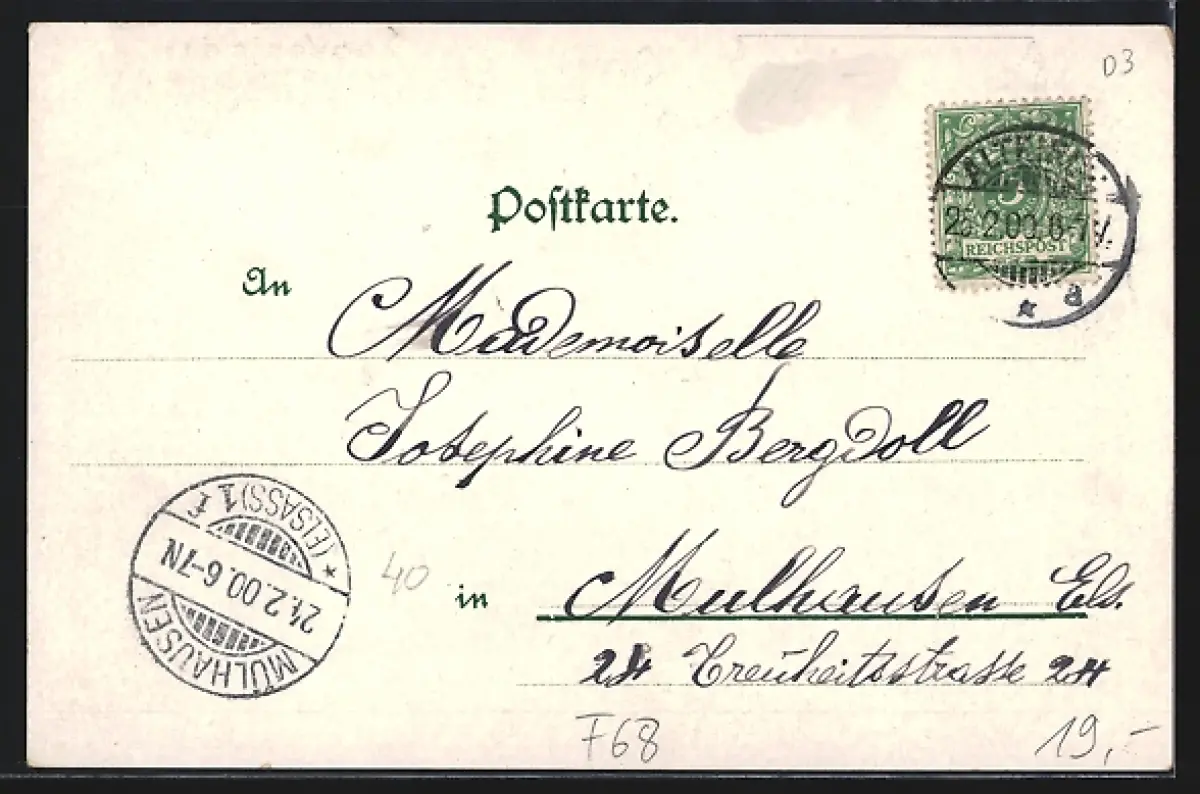 D3
5
REICHSPOST
25.2.00.6-7V.
a
Postkarte.
An
Mademoiselle
Josephine Bergdoll
in Mulhausen Els.
24 Treuheitsstrasse 24
MÜLHAUSEN
21.2.00.6-7N.
* (ELSASS) 1 f
40
F68
19,-